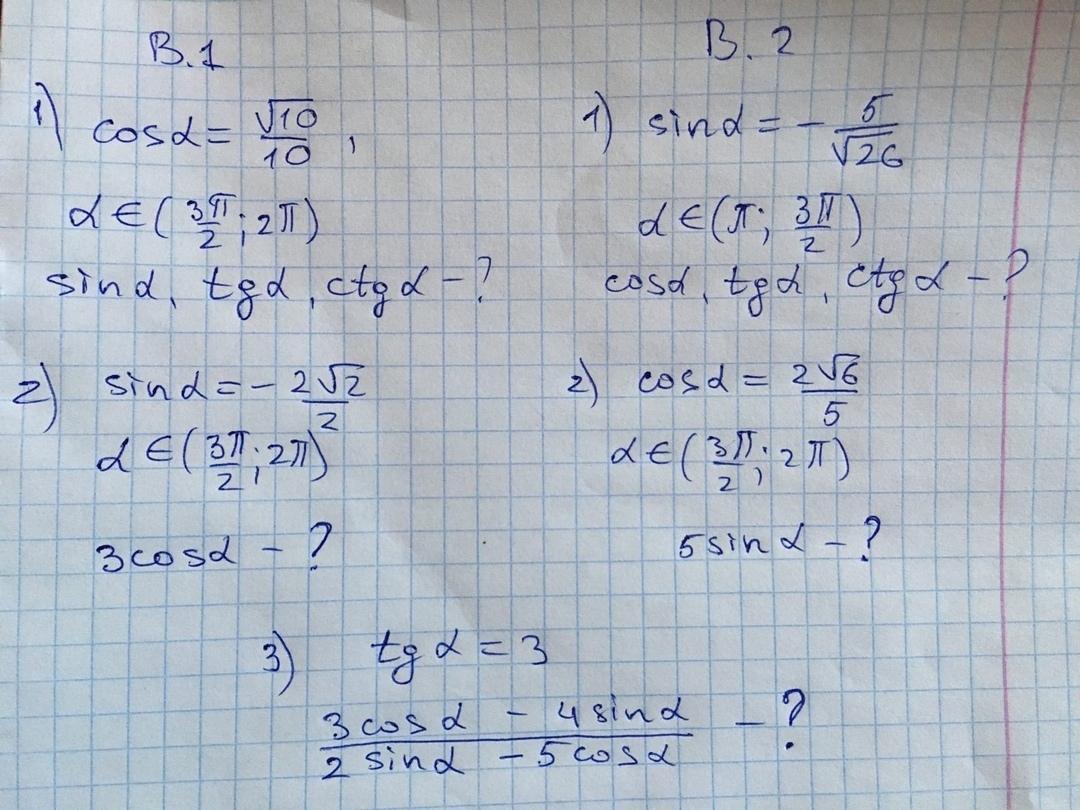 В.1
1) cosα = √10/10 ,
α ∈ (3π/2 ; 2π)
sinα, tgα, ctgα - ?
2) sinα = - 2√2/2
α ∈ (3π/2 ; 2π)
3cosα - ?
В.2
1) sinα = - 5/√26
α ∈ (π; 3π/2)
cosα, tgα, ctgα - ?
2) cosα = 2√6/5
α ∈ (3π/2 ; 2π)
5sinα - ?
3) tgα = 3
(3cosα - 4sinα)/(2sinα - 5cosα) - ?